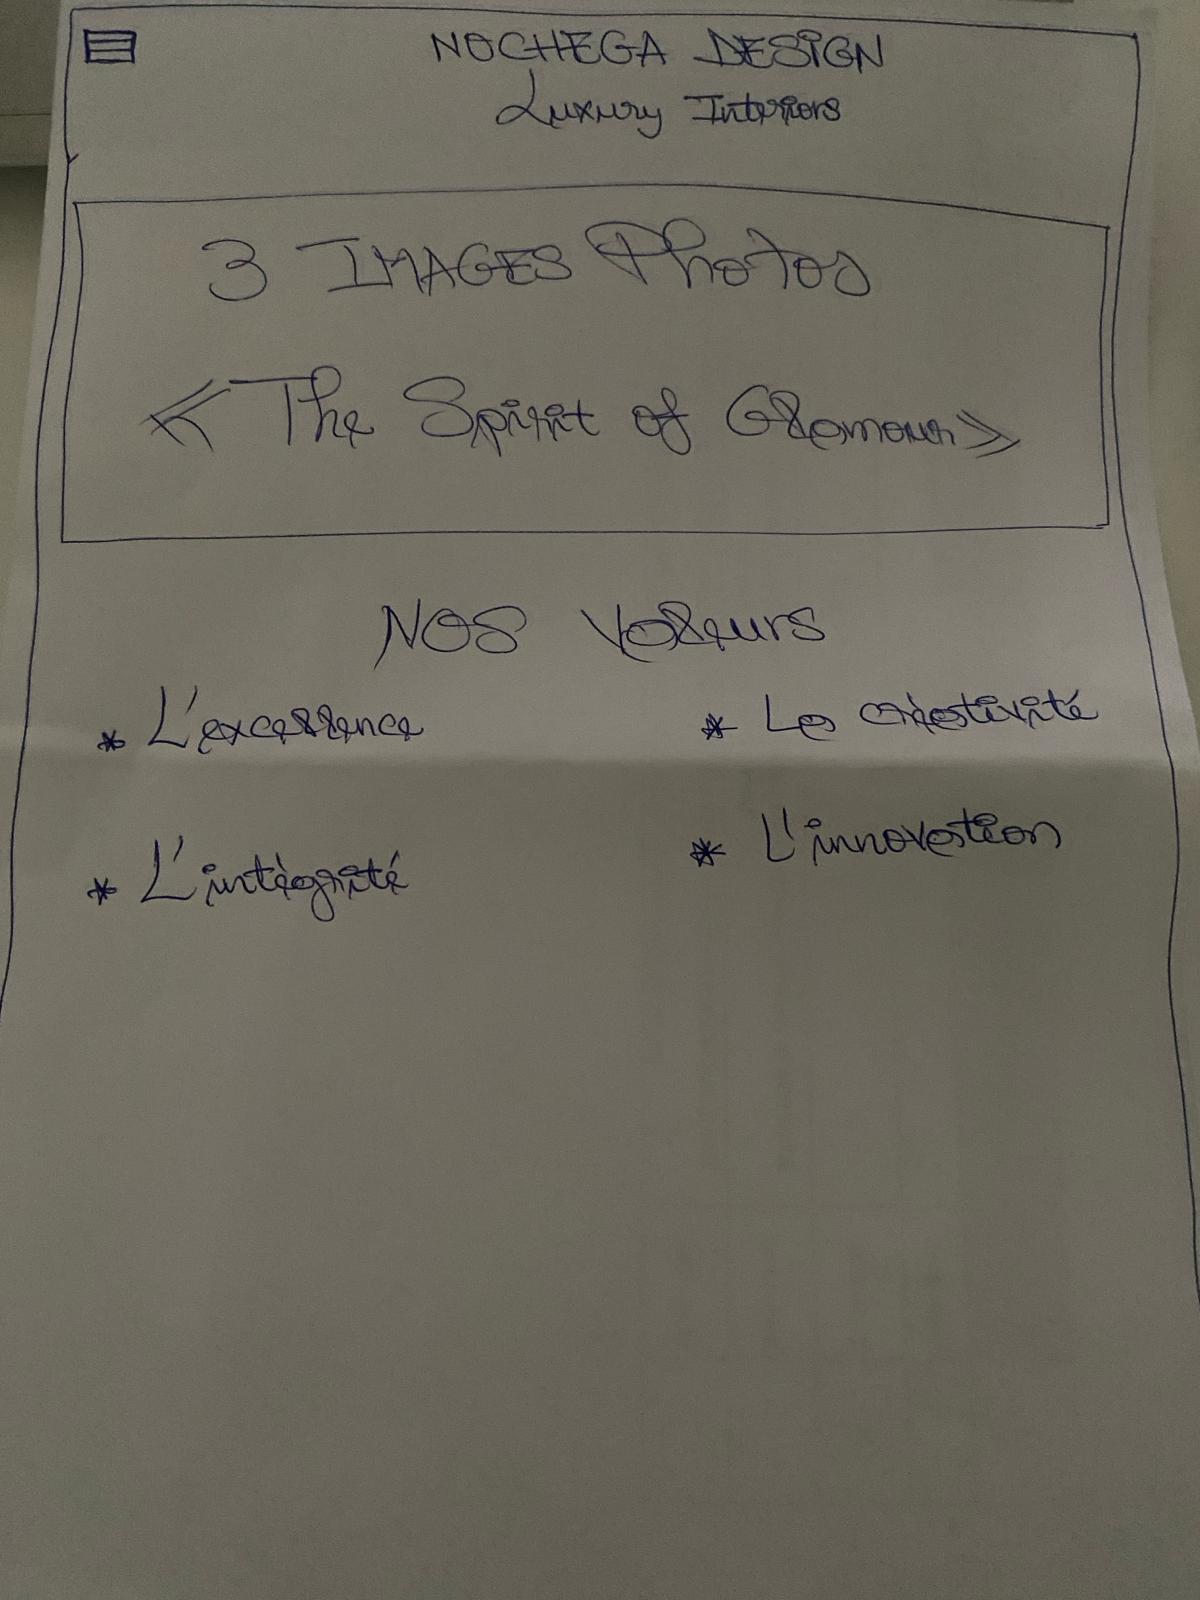 NOCHEGA DESIGN
Luxury Interiors
3 IMAGES Photos
« The Spirit of Glamour »
NOS Valeurs
* L'excellence
* La créativité
* L'intègrité
* L'innovation